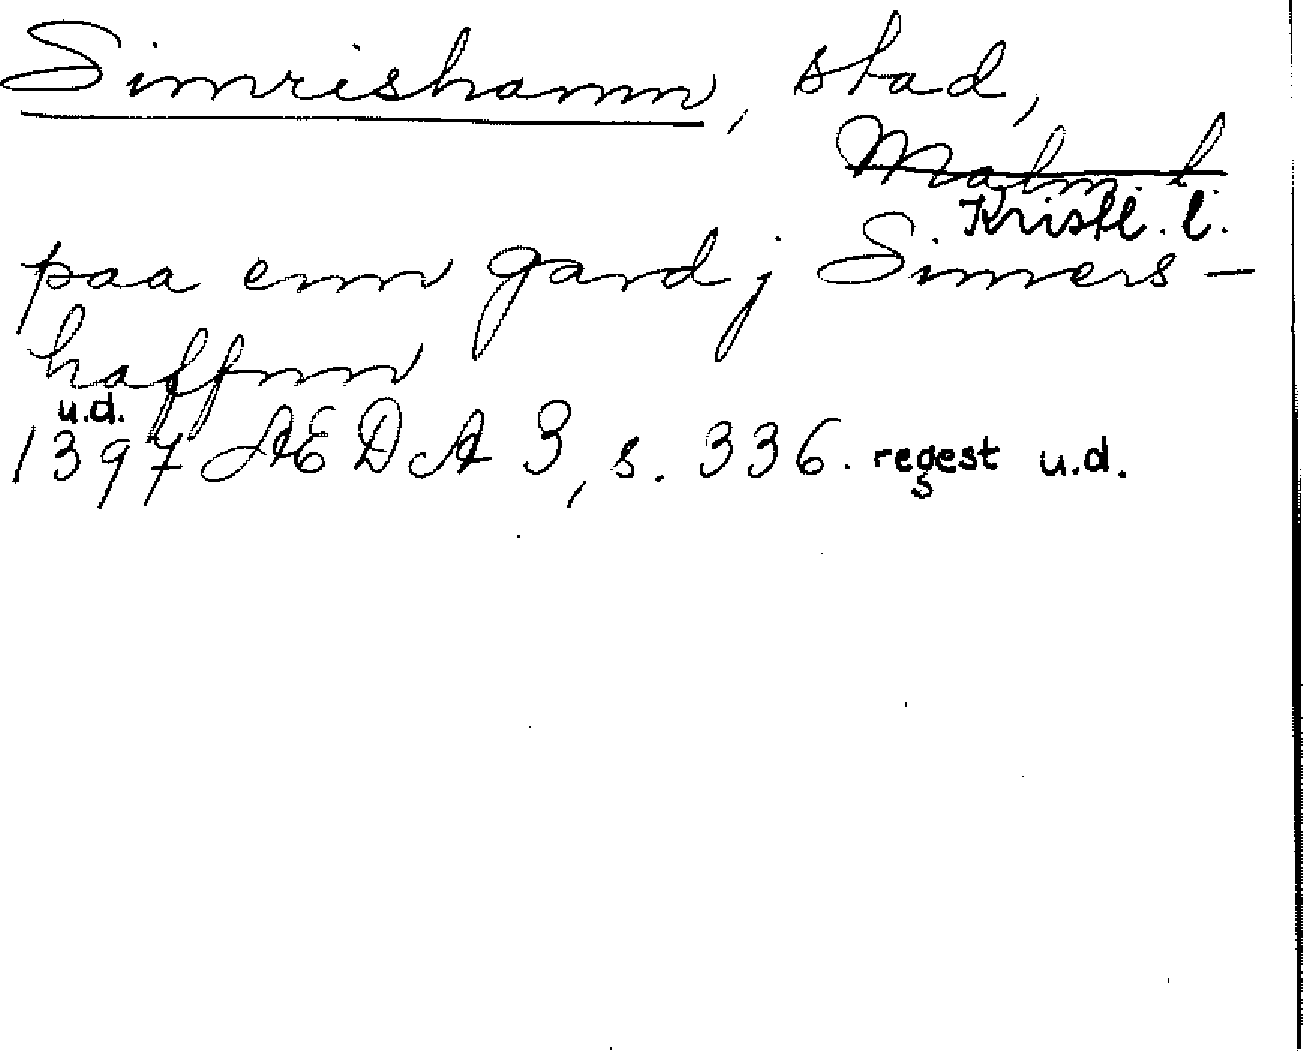 Simrishamn, stad,
Malm. l.
Kristl. l.
paa enn gard j Simers-
haffnn
u.d.
1397 ÆDA 3, s. 336. regest u.d.